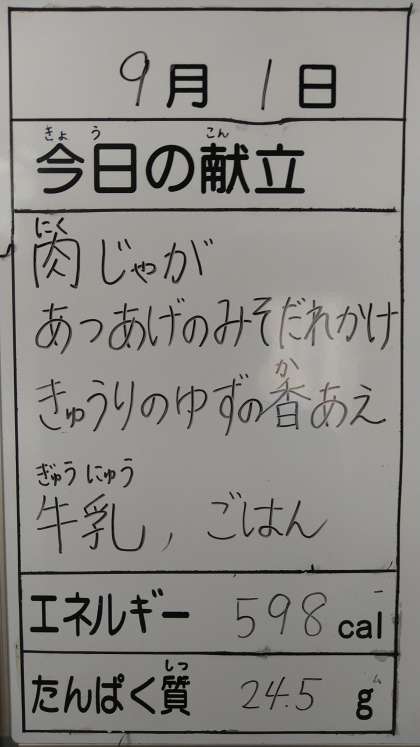 9月1日
きょう こん
今日の献立
にく
肉じゃが
あつあげのみそだれかけ
か
きゅうりのゆずの香あえ
ぎゅうにゅう
牛乳, ごはん
エネルギー 598cal
しつ
たんぱく質 24.5g